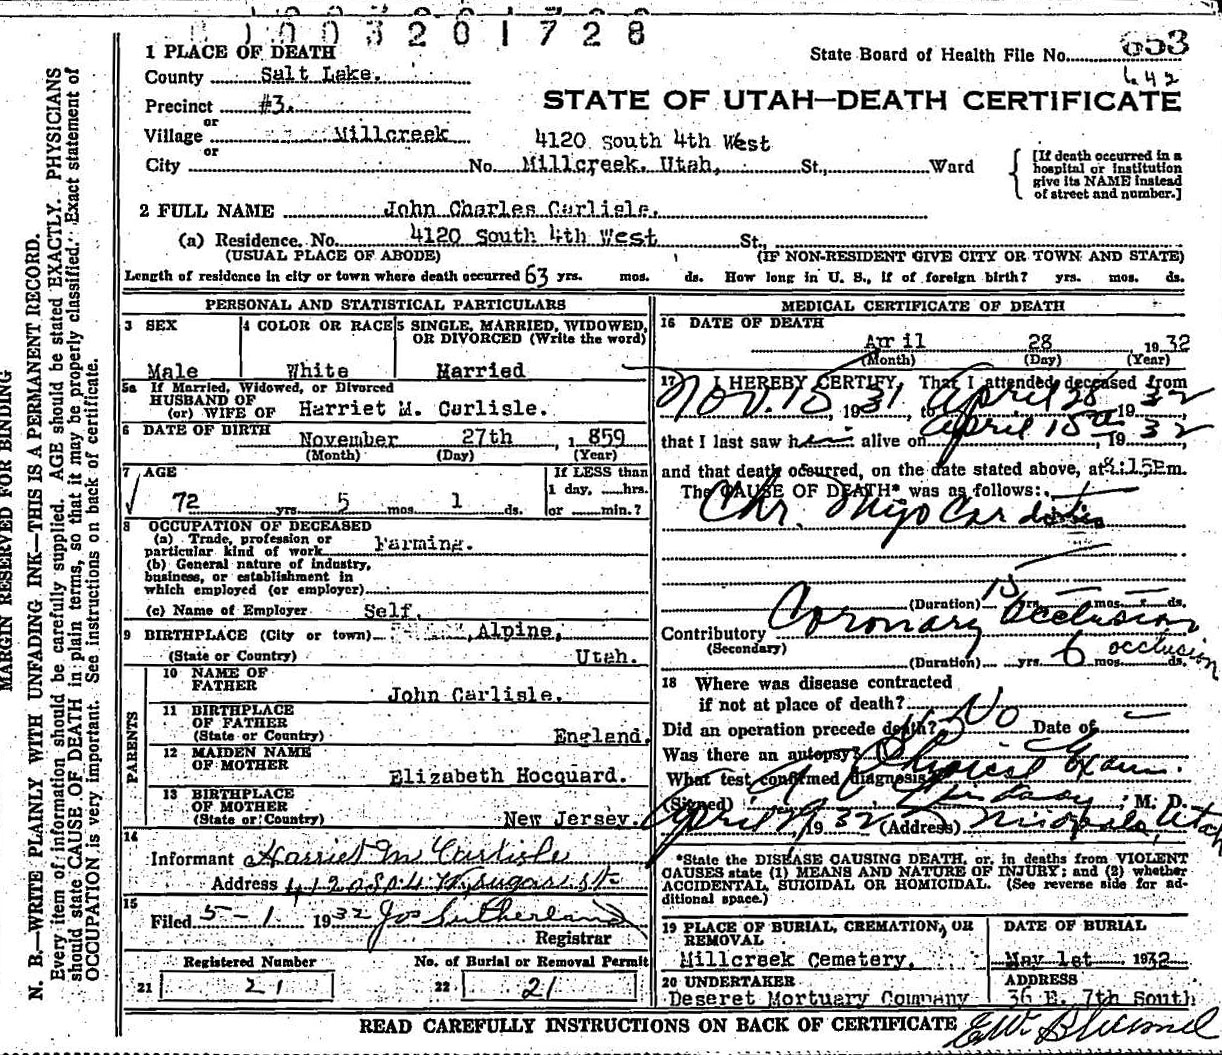 1003201728
State Board of Health File No. 653
642
1 PLACE OF DEATH
County Salt Lake.
STATE OF UTAH—DEATH CERTIFICATE
Precinct #3.
or
Village Millcreek
4120 South 4th West
or
City No. Millcreek, Utah, St., Ward
[If death occurred in a
hospital or institution
give its NAME instead
of street and number.]
2 FULL NAME John Charles Carlisle.
(a) Residence. No. 4120 South 4th West St.,
(USUAL PLACE OF ABODE) (IF NON-RESIDENT GIVE CITY OR TOWN AND STATE)
Length of residence in city or town where death occurred 63 yrs. mos. ds. How long in U. S., if of foreign birth? yrs. mos. ds.
PERSONAL AND STATISTICAL PARTICULARS
3 SEX
Male
4 COLOR OR RACE
White
5 SINGLE, MARRIED, WIDOWED,
OR DIVORCED (Write the word)
Married
5a If Married, Widowed, or Divorced
HUSBAND OF
(or) WIFE OF Harriet M. Carlisle.
6 DATE OF BIRTH
November 27th 1859
(Month) (Day) (Year)
7 AGE
72 yrs. 5 mos. 1 ds.
If LESS than
1 day, hrs.
or min.?
8 OCCUPATION OF DECEASED
(a) Trade, profession or
particular kind of work Farming.
(b) General nature of industry,
business, or establishment in
which employed (or employer)
(c) Name of Employer Self.
9 BIRTHPLACE (City or town) Alpine,
(State or Country) Utah.
PARENTS
10 NAME OF
FATHER
John Carlisle.
11 BIRTHPLACE
OF FATHER
(State or Country) England.
12 MAIDEN NAME
OF MOTHER
Elizabeth Hocquard.
13 BIRTHPLACE
OF MOTHER
(State or Country) New Jersey.
14
Informant Harriet M Carlisle
Address 4120 So 4 W,
15
Filed 5-1 1932 Jos Sutherland
Registrar
Registered Number No. of Burial or Removal Permit
21 21 22 21
MEDICAL CERTIFICATE OF DEATH
16 DATE OF DEATH
April 28 1932
(Month) (Day) (Year)
17 I HEREBY CERTIFY, That I attended deceased from
Nov. 15 1931, to April 28 1932
that I last saw him alive on April 15th, 1932
and that death occurred, on the date stated above, at 8:15P m.
The CAUSE OF DEATH* was as follows:
Chr. Myocarditis
(Duration) 15 yrs. mos. ds.
Contributory Coronary occlusion
(Secondary) occlusion
(Duration) yrs. 6 mos. ds.
18 Where was disease contracted
if not at place of death?
Did an operation precede death? No Date of
Was there an autopsy?
What test confirmed diagnosis? Physical Exam.
(Signed) Lindsay, M. D.
April 29, 1932 (Address) Utah
*State the DISEASE CAUSING DEATH, or, in deaths from VIOLENT
CAUSES state (1) MEANS AND NATURE OF INJURY; and (2) whether
ACCIDENTAL, SUICIDAL OR HOMICIDAL. (See reverse side for ad-
ditional space.)
19 PLACE OF BURIAL, CREMATION, OR
REMOVAL
Millcreek Cemetery,
DATE OF BURIAL
May 1st, 1932
20 UNDERTAKER
Deseret Mortuary Company
ADDRESS
36 E. 7th South
READ CAREFULLY INSTRUCTIONS ON BACK OF CERTIFICATE
MARGIN RESERVED FOR BINDING
N. B.—WRITE PLAINLY WITH UNFADING INK—THIS IS A PERMANENT RECORD.
Every item of information should be carefully supplied. AGE should be stated EXACTLY. PHYSICIANS
should state CAUSE OF DEATH in plain terms, so that it may be properly classified. Exact statement of
OCCUPATION is very important. See instructions on back of certificate.